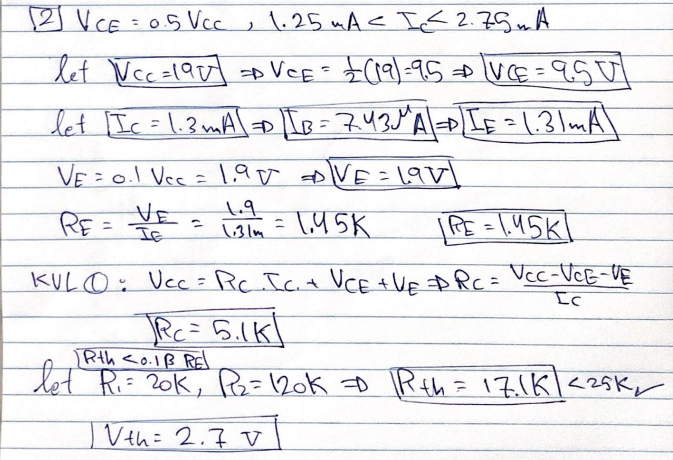 [2] VCE = 0.5 Vcc , 1.25 mA < Ic < 2.75 mA
let Vcc = 19V ⇒ VCE = ½(19) = 9.5 ⇒ VCE = 9.5 V
let Ic = 1.3 mA ⇒ IB = 7.43 μA ⇒ IE = 1.31 mA
VE = 0.1 Vcc = 1.9 V ⇒ VE = 1.9V
RE = VE/IE = 1.9/1.31m = 1.45K RE = 1.45K
KVL ①: Vcc = Rc.Ic + VCE + VE ⇒ Rc = Vcc-VCE-VE/Ic
Rc = 5.1K
Rth < 0.1 β RE
let R1 = 20K, R2 = 120K ⇒ Rth = 17.1K < 25K ✓
Vth = 2.7 V